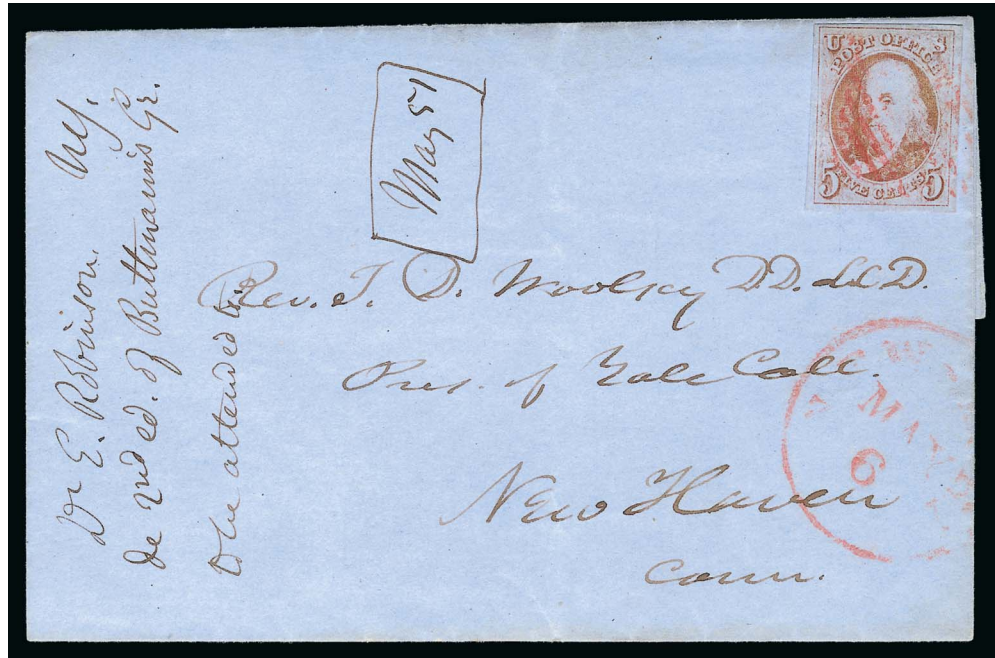 Dr E. Robinson. Ny.
de 2nd ed. of Buttmann's Gr.
to be attended to
May 51
U S
POST OFFICE
FIVE CENTS
5 5
Rev. T. D. Woolsey DD. LLD.
Pres. of Yale Coll.
New Haven
Conn.
MAY
6